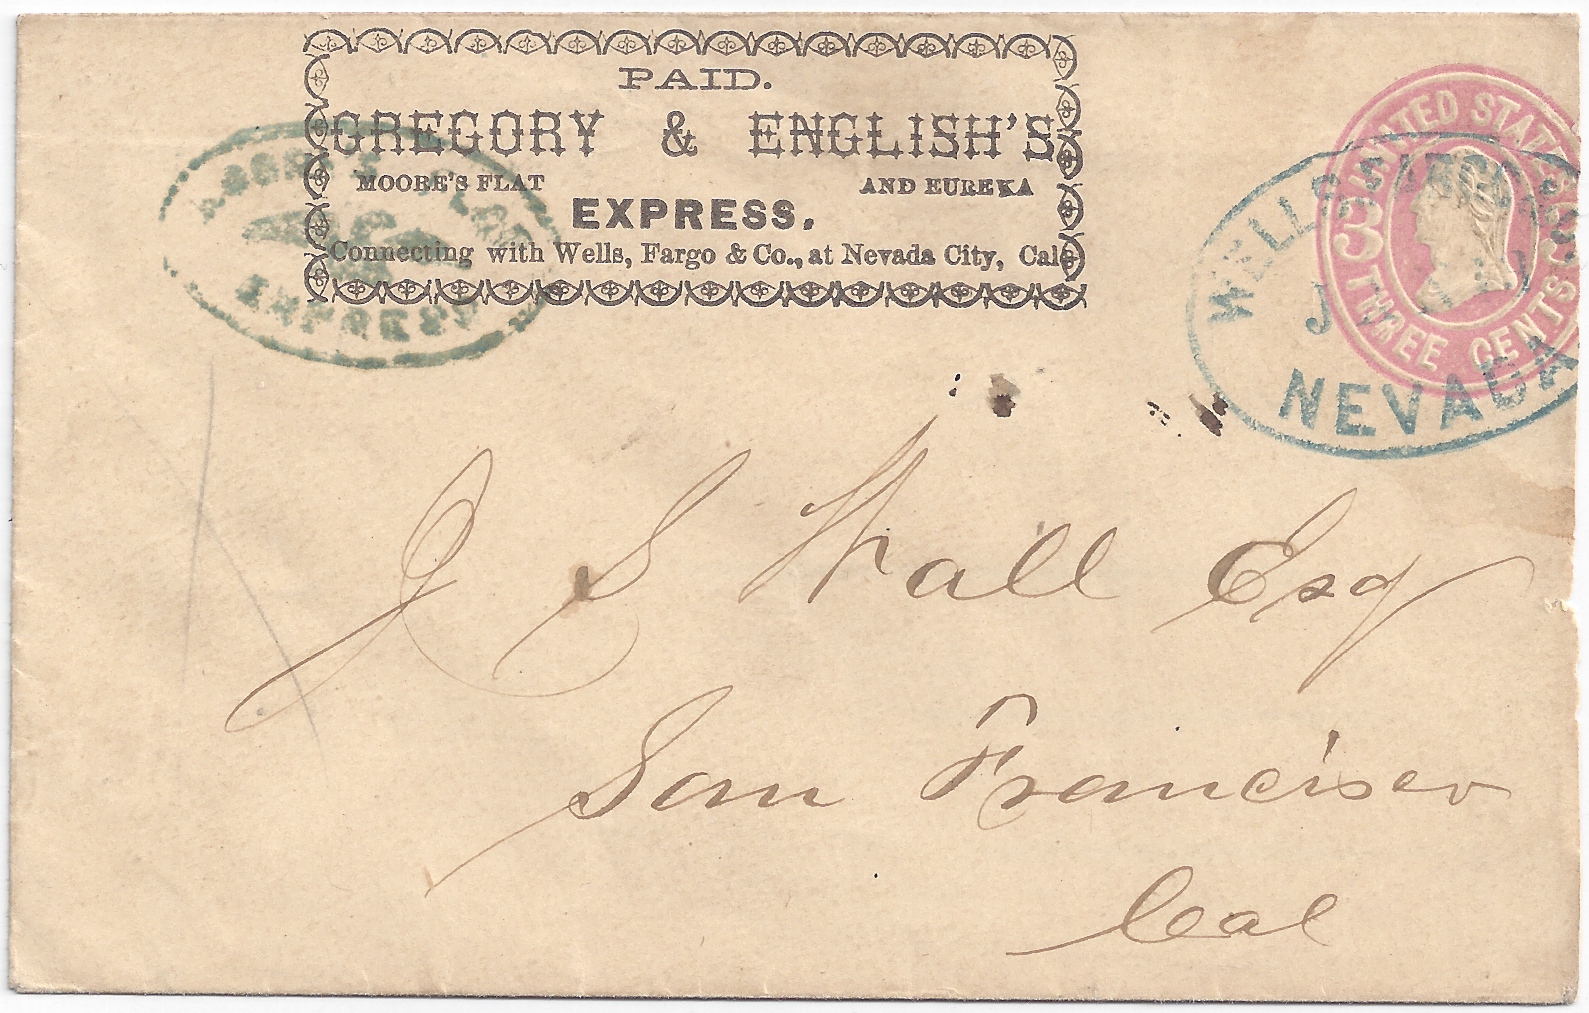 PAID.
GREGORY & ENGLISH'S
MOORE'S FLAT AND EUREKA
EXPRESS.
Connecting with Wells, Fargo & Co., at Nevada City, Cal.
EXPRESS
UNITED STATES
3 3
THREE CENTS
WELLS FARGO
NEVADA
J S Wall Esq
San Francisco
Cal